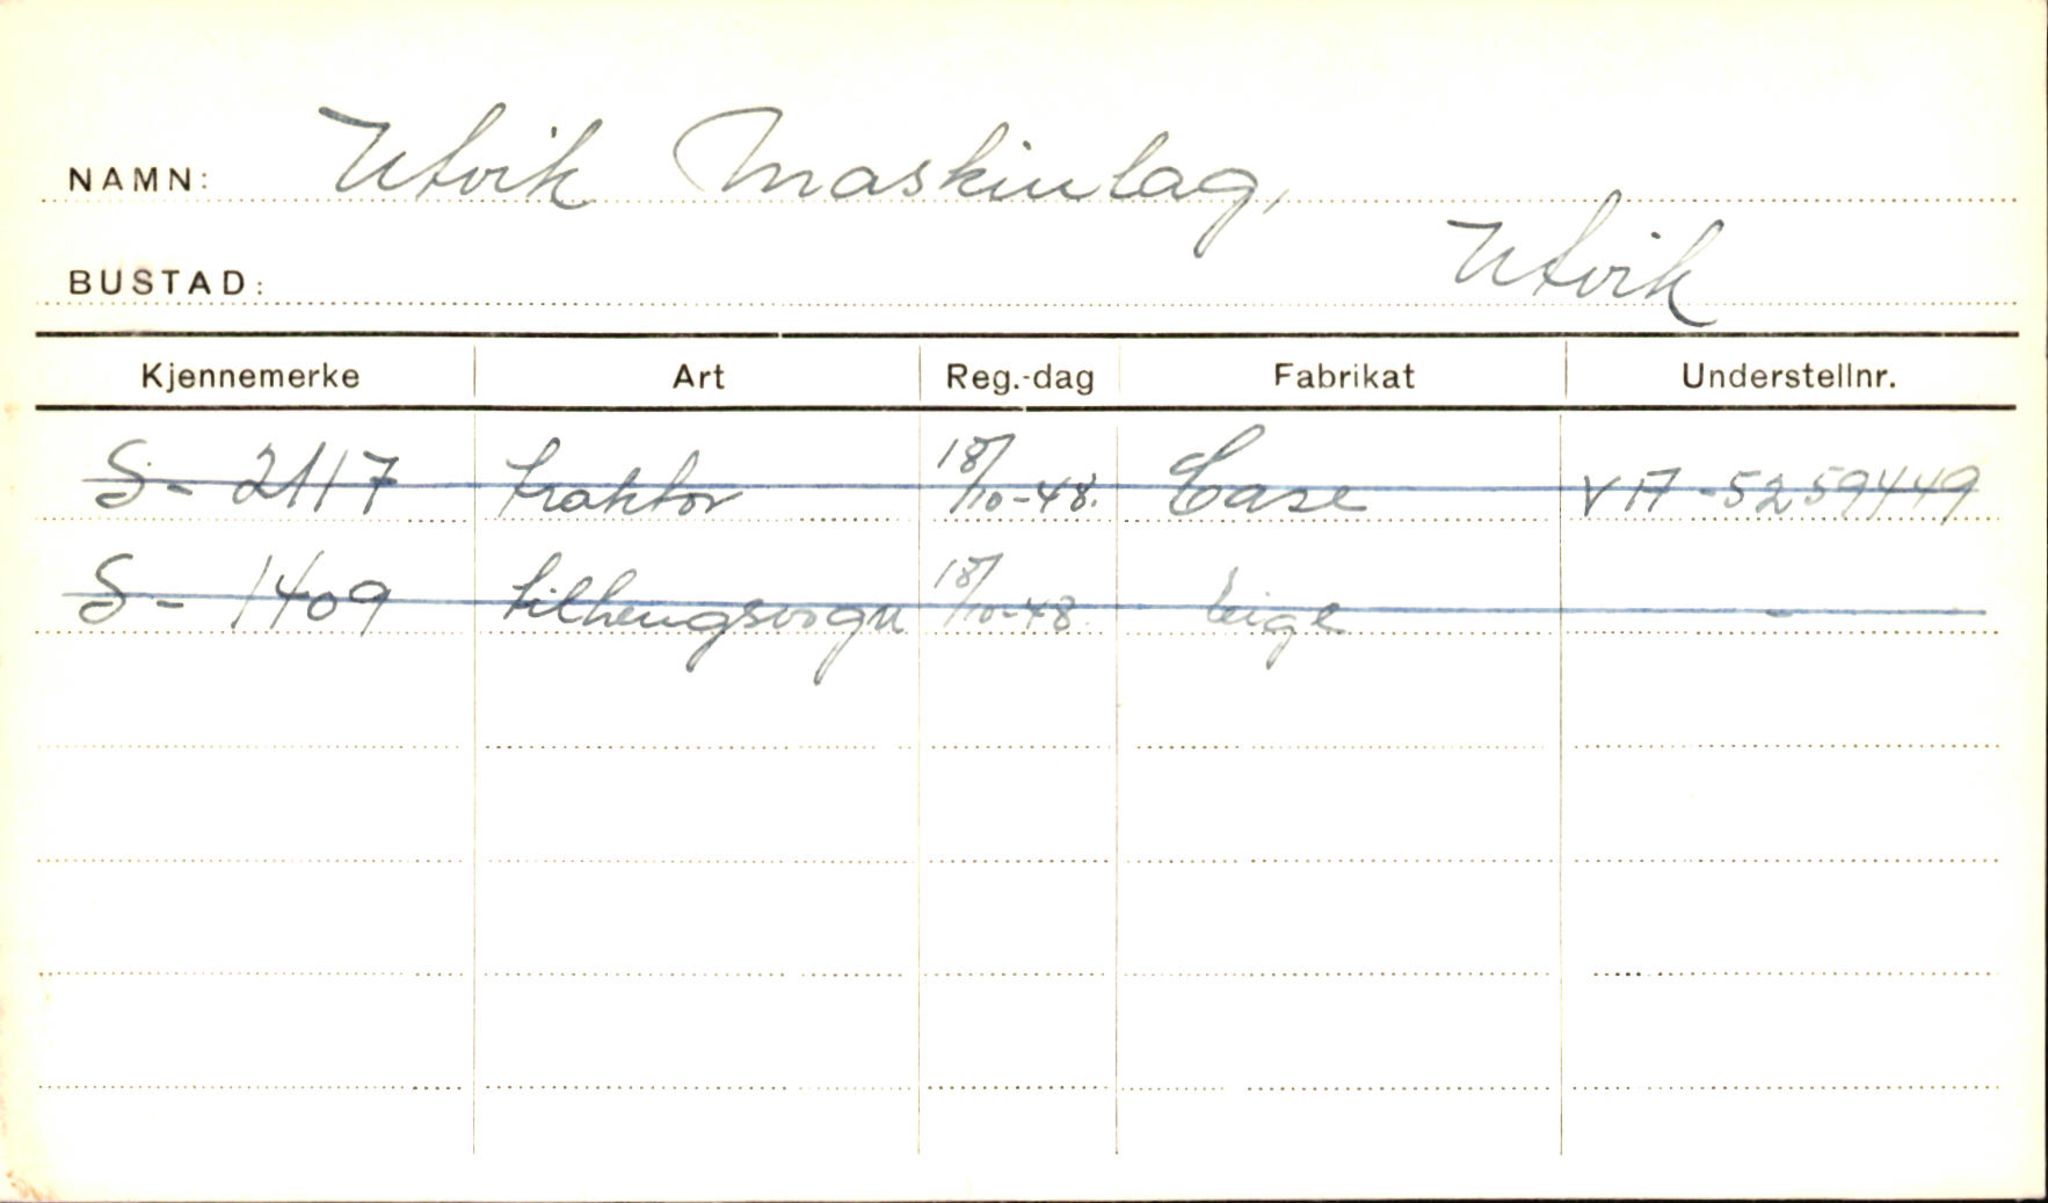 NAMN: Utvik Maskinlag,
BUSTAD: Utvik
Kjennemerke Art Reg.-dag Fabrikat Understellnr.
S- 2117 traktor 18/10-48. Case V17-5259449
S- 1409 tilhengsvogn 18/10-48. Eige -